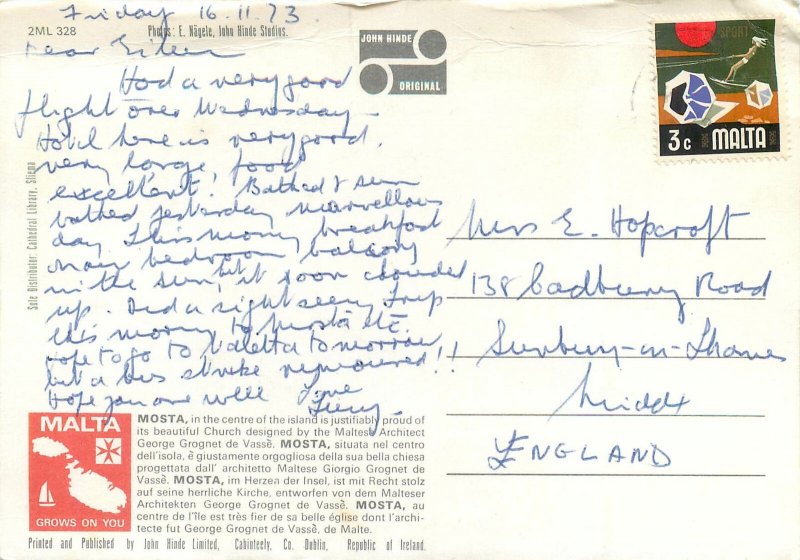 Friday 16.11.73
2ML 328
Photos: E. Nägele, John Hinde Studios.
Dear Eileen
Had a very good
flight over Wednesday
Hotel here is very good.
very large food
excellent! Bathed & sun
bathed yesterday marvellous
day. This morning breakfast
on our bedroom balcony
in the sun, but it soon clouded
up. Did a sight seeing trip
this morning to Mosta etc.
hope to go to Valetta tomorrow
but a bus strike rumoured!!
Hope you are well Love
JOHN HINDE
ORIGINAL
SPORT
3c MALTA
Mrs E. Hopcroft
138 Cadbury Road
Sunbury-on-Thames
Middx
ENGLAND
Sole Distributor: Cathedral Library, Sliema
MALTA
GROWS ON YOU
MOSTA, in the centre of the island is justifiably proud of
its beautiful Church designed by the Maltese Architect
George Grognet de Vassè. MOSTA, situata nel centro
dell'isola, è giustamente orgogliosa della sua bella chiesa
progettata dall' architetto Maltese Giorgio Grognet de
Vassè. MOSTA, im Herzen der Insel, ist mit Recht stolz
auf seine herrliche Kirche, entworfen von dem Malteser
Architekten George Grognet de Vassè. MOSTA, au
centre de l'île est très fier de sa belle église dont l'archi-
tecte fut George Grognet de Vassè, de Malte.
Printed and Published by John Hinde Limited, Cabinteely, Co. Dublin, Republic of Ireland.